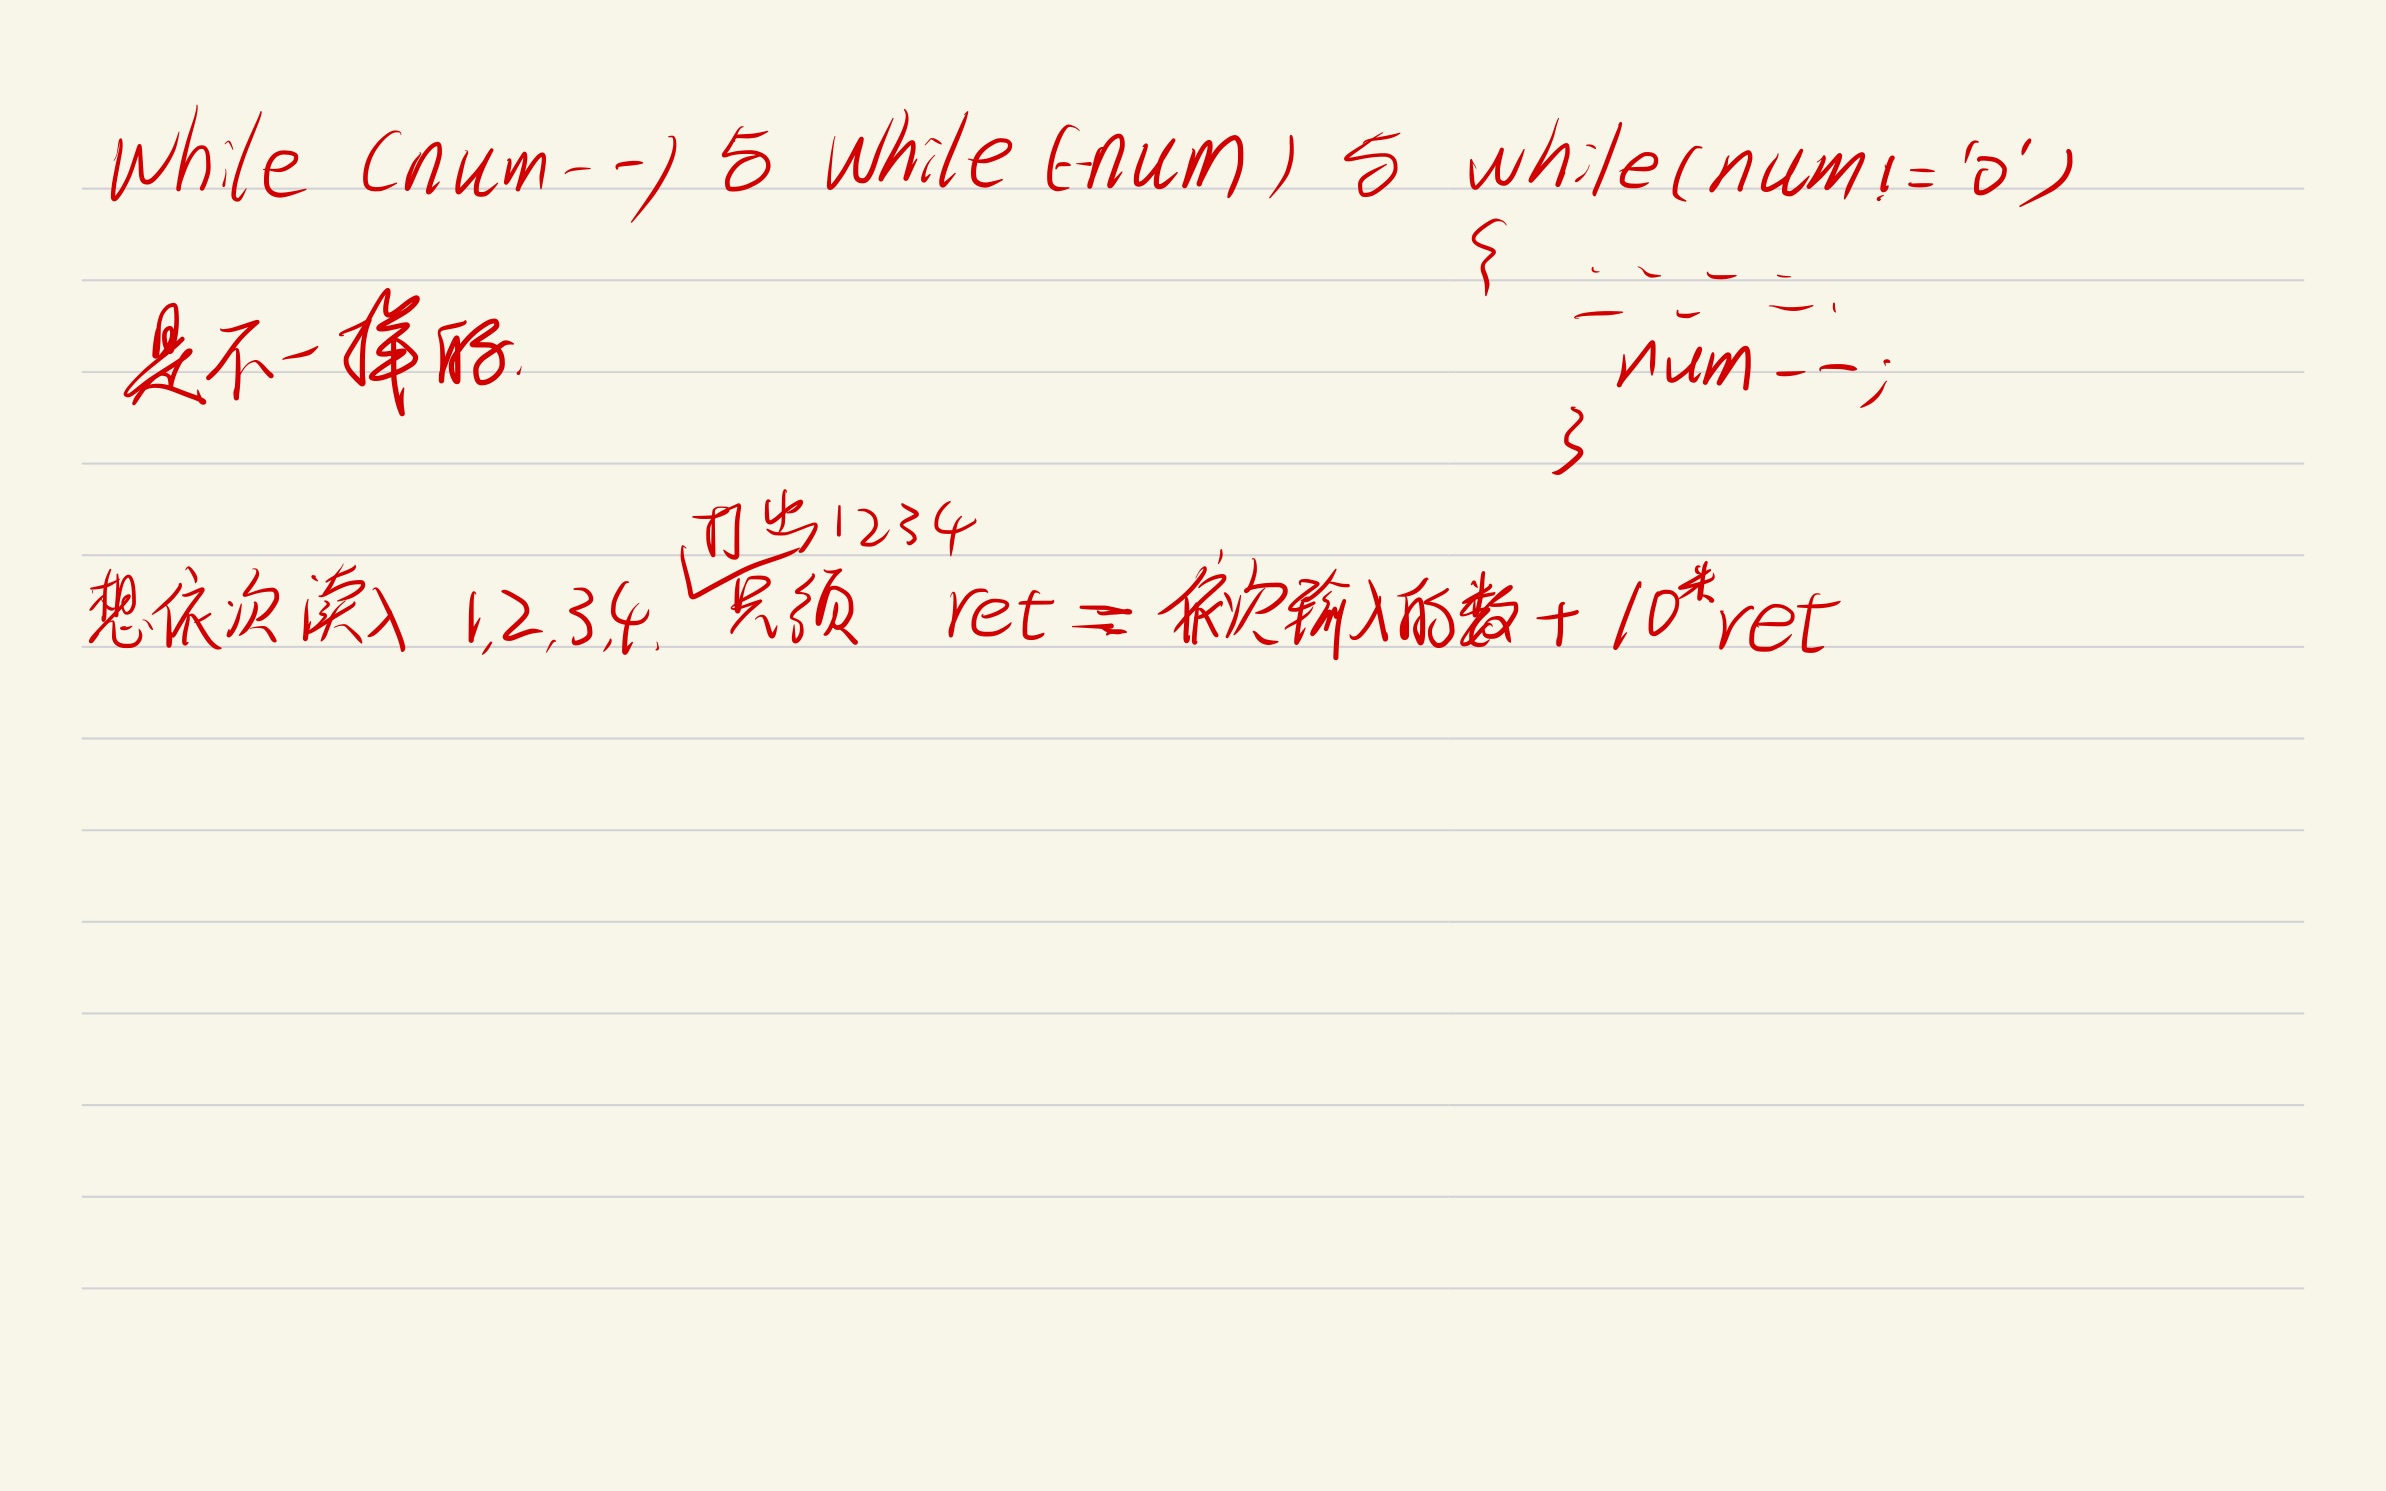 while (num--) 与 while (--num) 与 while(num!='0')
{
num--;
}
是不一样的.
打出1234
想依次读入 1,2,3,4. 累级 ret = 依次输入的数 + 10*ret